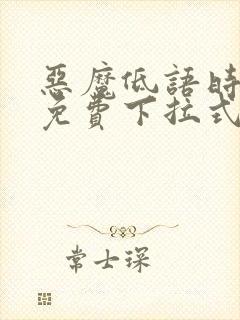 惡魔低語時
免費下拉式
常士琛